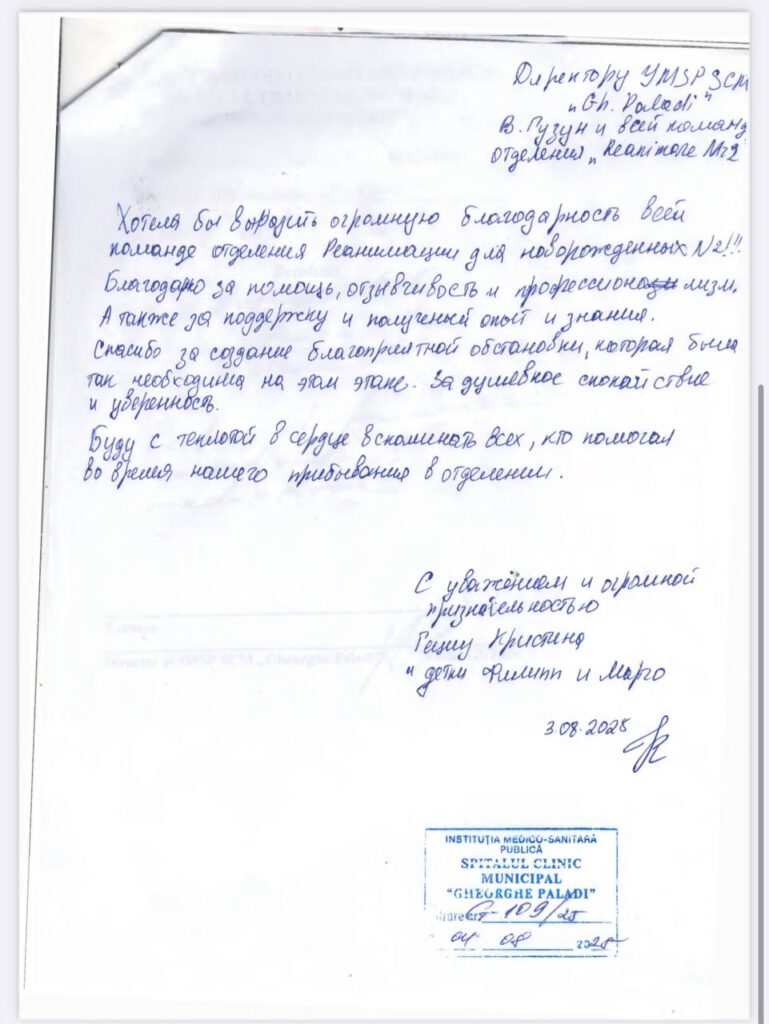 Директору УMSP SCM
"Gh. Paladi"
В. Гузун и всей команд
отделения "Reanimare Nr2"
Хотела бы выразить огромную благодарность всей
команде отделения Реанимации для новорожденных N2!!!
Благодарю за помощь, отзывчивость и профессионализм.
А также за поддержку и полученый опыт и знания.
Спасибо за создание благоприятной обстановки, которая была
так необходима на этом этапе. За душевное спокойствие
и уверенность.
Буду с теплотой в сердце вспоминать всех, кто помогал
во время нашего прибывания в отделении.
С уважением и огромной
признательностью
Кристина
и детки Филипп и Марго
3.08.2025
INSTITUȚIA MEDICO-SANITARĂ
PUBLICĂ
SPITALUL CLINIC
MUNICIPAL
"GHEORGHE PALADI"
109/25
04 08 2025